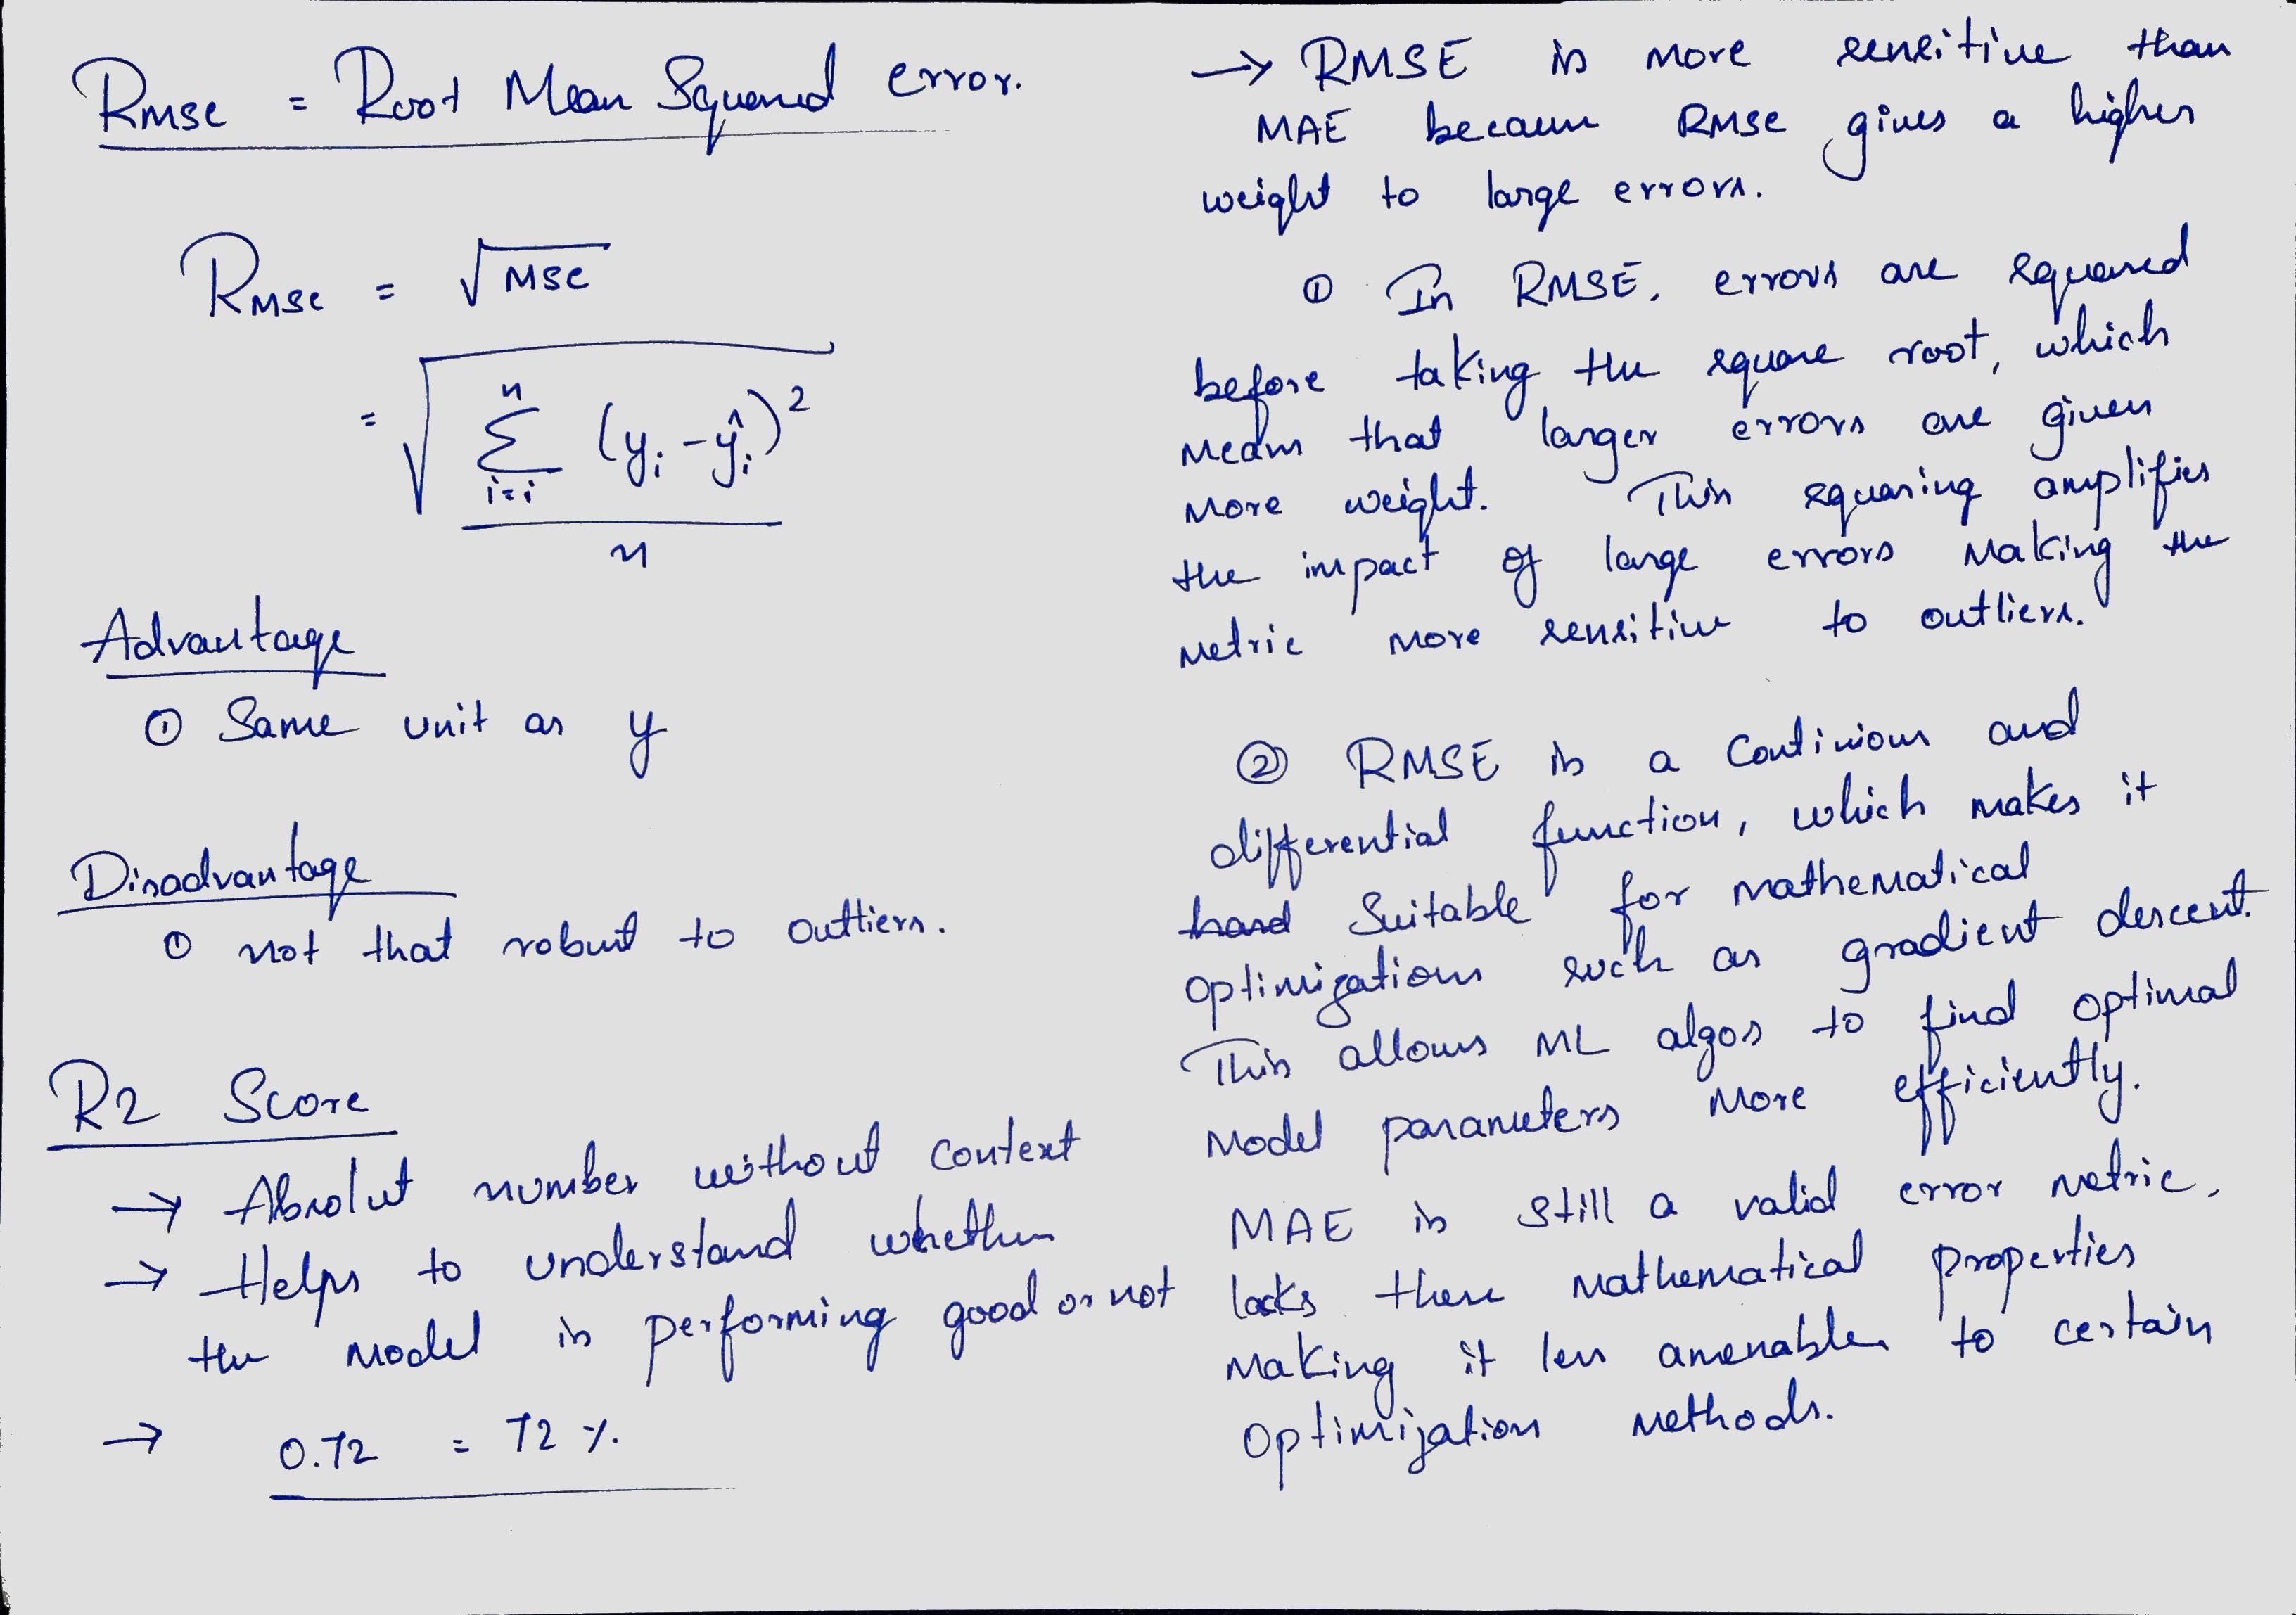 Rmse = Root Mean Squared error.
Rmse = √MSE
= √ n Σ i=i (yi - ŷi)² / n
Advantage
① Same unit as y
Disadvantage
① not that robust to outliers.
R2 Score
→ Absolut number without context
→ Helps to understand whether
the model is performing good or not
→ 0.72 = 72 %.
→ RMSE is more sensitive than
MAE because RMSE gives a higher
weight to large errors.
① In RMSE, errors are squared
before taking the square root, which
means that larger errors are given
more weight. This squaring amplifies
the impact of large errors making the
metric more sensitive to outliers.
② RMSE is a Continious and
differential function, which makes it
hard Suitable for mathematical
optimizations such as gradient descent.
This allows ML algos to find optimal
model parameters more efficiently.
MAE is still a valid error metric,
lacks these mathematical properties
making it less amenable to certain
Optimization methods.